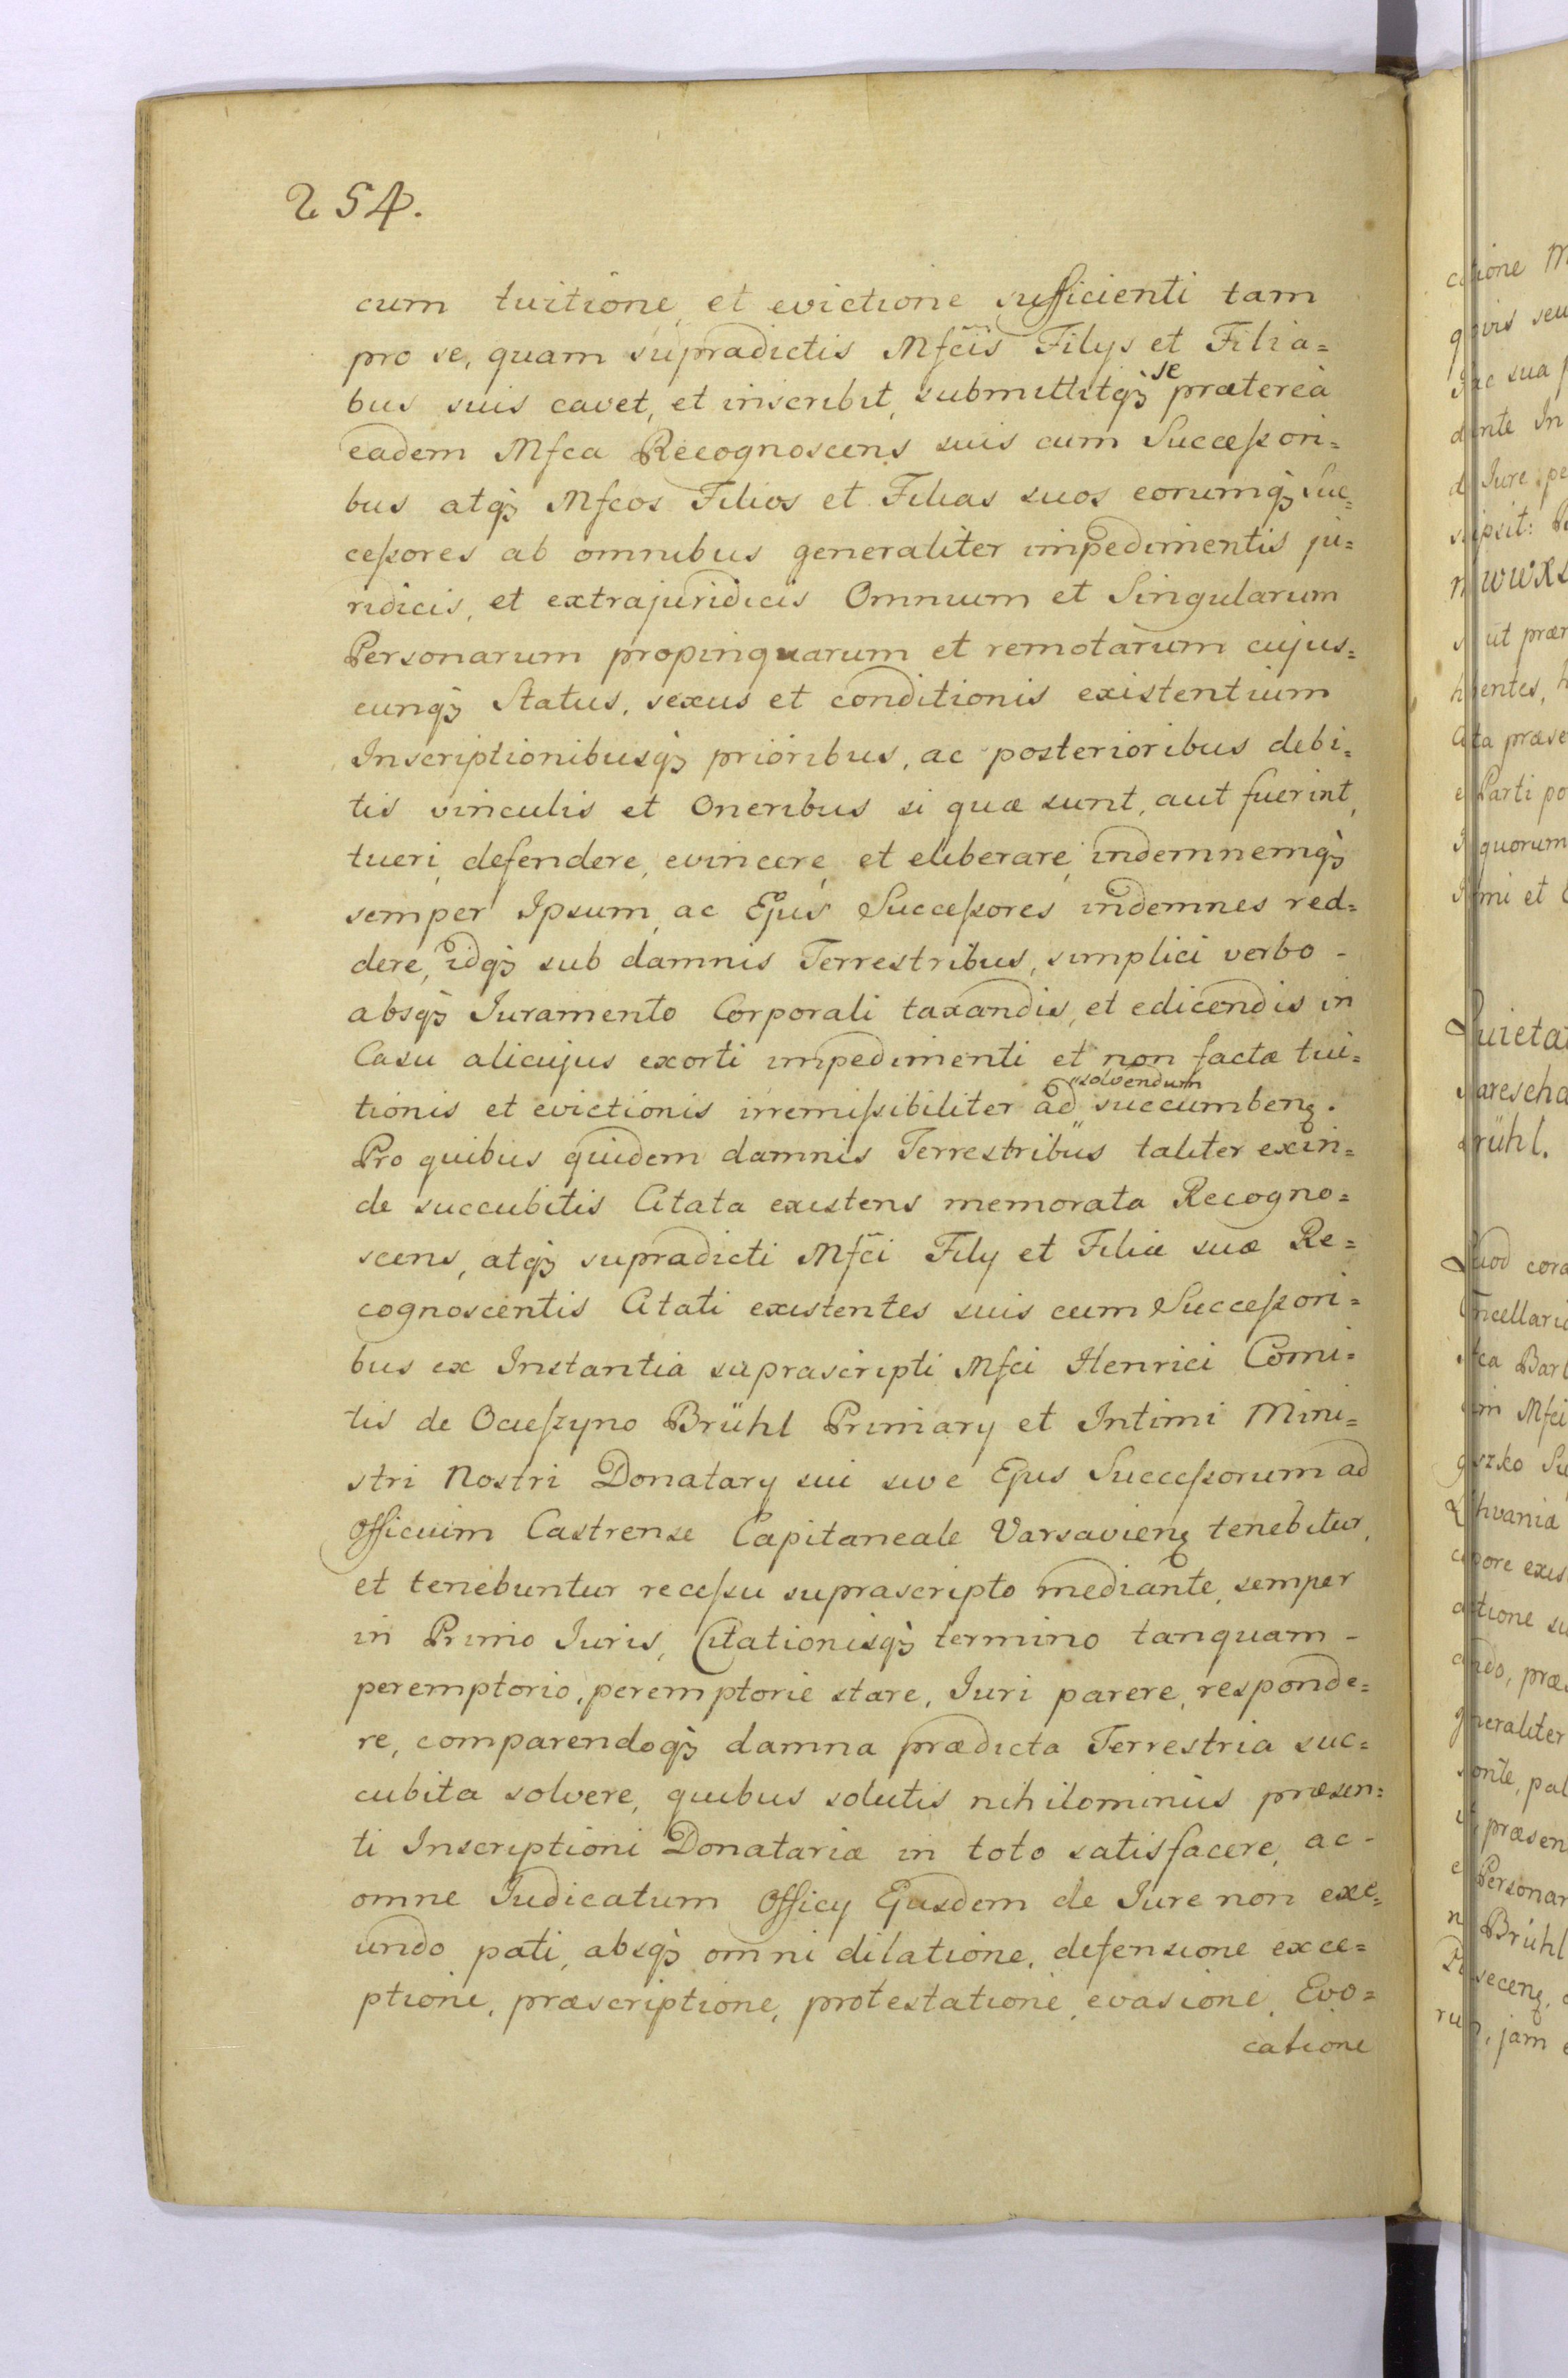 254.
cum tuitione, et evictione sufficienti tam
pro se, quam supradictis Mfcis Filys et Filia=
bus suis cavet, et inscribit, submittitqꝫ se præterea
eadem Mfca Recognoscens suis cum Succeſsori=
bus atqꝫ Mfcos Filios et Filias suos eorumqꝫ Suc=
ceſsores ab omnibus generaliter impedimentis ju=
ridicis, et extrajuridicis Omnium et Singularum
Personarum propinquarum et remotarum cujus=
cunqꝫ Status, sexus et conditionis existentium
Inscriptionibusqꝫ prioribus, ac posterioribus debi=
tis vinculis et Oneribus si quæ sunt, aut fuerint,
tueri, defendere, evincere, et eliberare, indemnemqꝫ
semper Ipsum, ac Ejus Succeſsores indemnes red=
dere, idqꝫ sub damnis Terrestribus, simplici verbo -
absqꝫ Juramento Corporali taxandis, et edicendis in
Casu alicujus exorti impedimenti et non factæ tui=
tionis et evictionis irremiſsibiliter ad "solvendum succumbenꝫ.
Pro quibus quidem damnis Terrestribus taliter exin=
de succubitis Citata existens memorata Recogno=
scens, atqꝫ supradicti Mfci Fily et Filiæ suæ Re=
cognoscentis Citati existentes suis cum Succeſsori=
bus ex Instantia suprascripti Mfci Henrici Comi=
tis de Ocieſzyno Brühl Primary et Intimi Mini=
stri Nostri Donatary sui sive Ejus Succeſsorum ad
Officium Castrense Capitaneale Varsavienꝫ tenebitur,
et tenebuntur receſsu suprascripto mediante, semper
in Primo Juris, Citationisqꝫ termino tanquam -
peremptorio, peremptorie stare, Juri parere, responde=
re, comparendoqꝫ damna prædicta Terrestria suc=
cubita solvere, quibus solutis nihilominus præsen=
ti Inscriptioni Donatariæ in toto satisfacere, ac -
omne Judicatum Officy Ejusdem de Jure non exe=
undo pati, absqꝫ omni dilatione, defensione exce=
ptione, præscriptione, protestatione, evasione, Evo=
catione